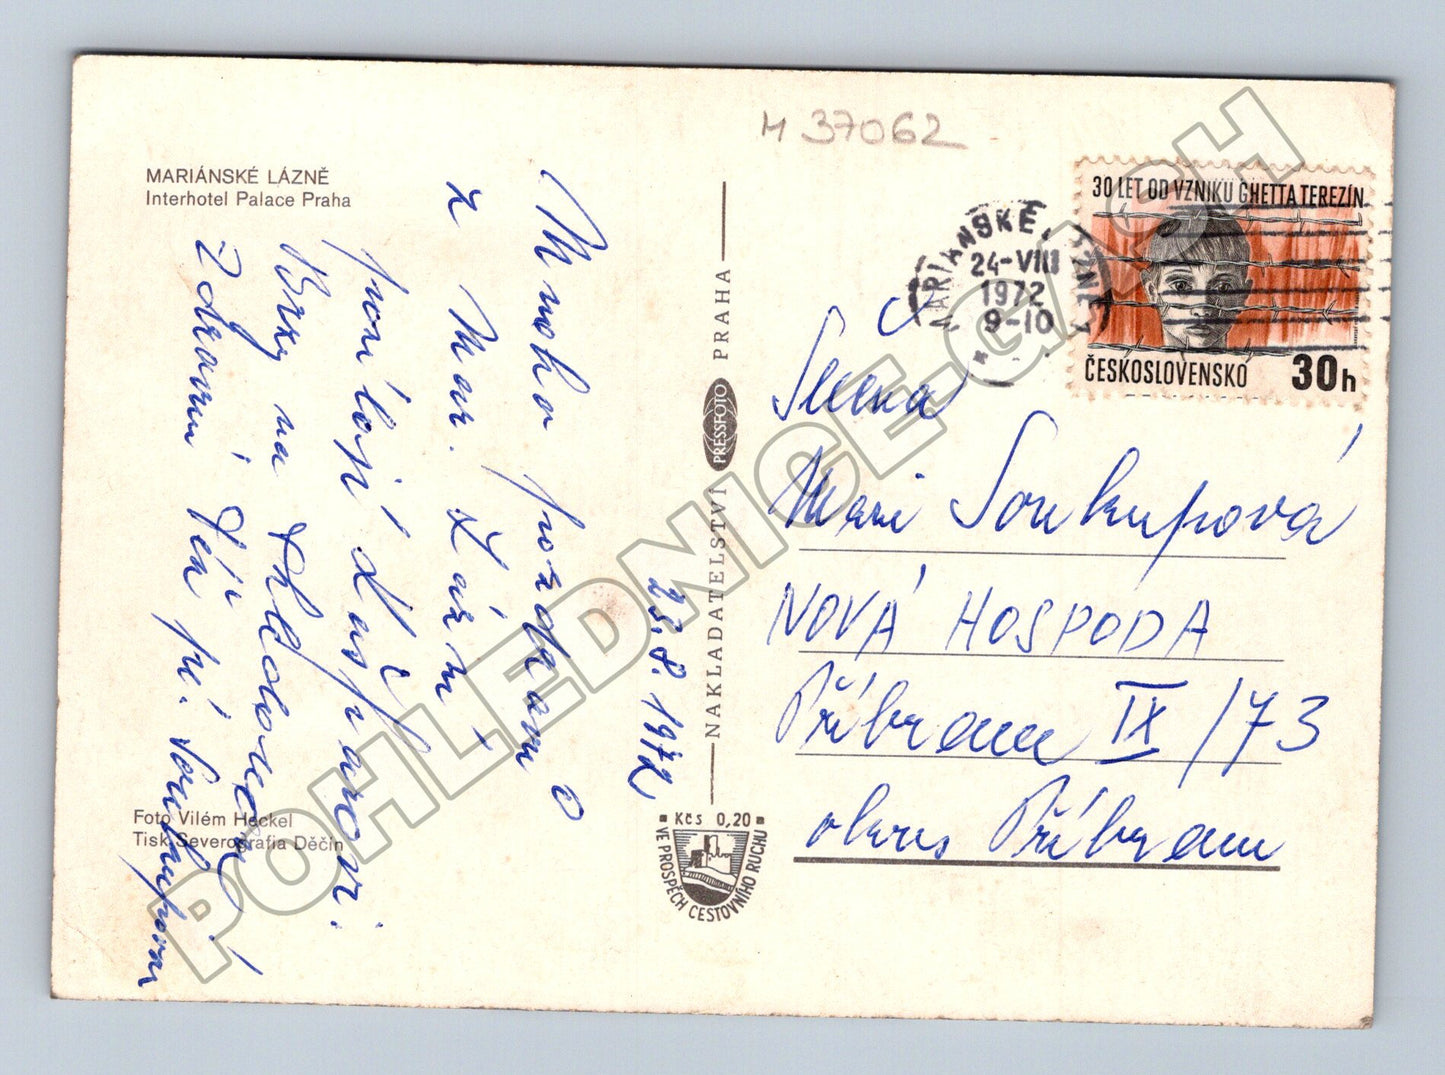 M 37062
MARIÁNSKÉ LÁZNĚ
Interhotel Palace Praha
Mnoho pozdravů
z Mar. Lázní
posílají
Brzy na shledanou
Zdraví Tě
Foto Vilém Heckel
Tisk Severografia Děčín
23.8.1972
NAKLADATELSTVÍ PRESSFOTO PRAHA
Kčs 0,20
VE PROSPĚCH CESTOVNÍHO RUCHU
MARIÁNSKÉ LÁZNĚ 1
24-VIII
1972
9-10
30 LET OD VZNIKU GHETTA TEREZÍN
ČESKOSLOVENSKO 30h
Marie Soukupová
NOVÁ HOSPODA
Příbram IX/73
okres Příbram
POHLEDNICE-GASH